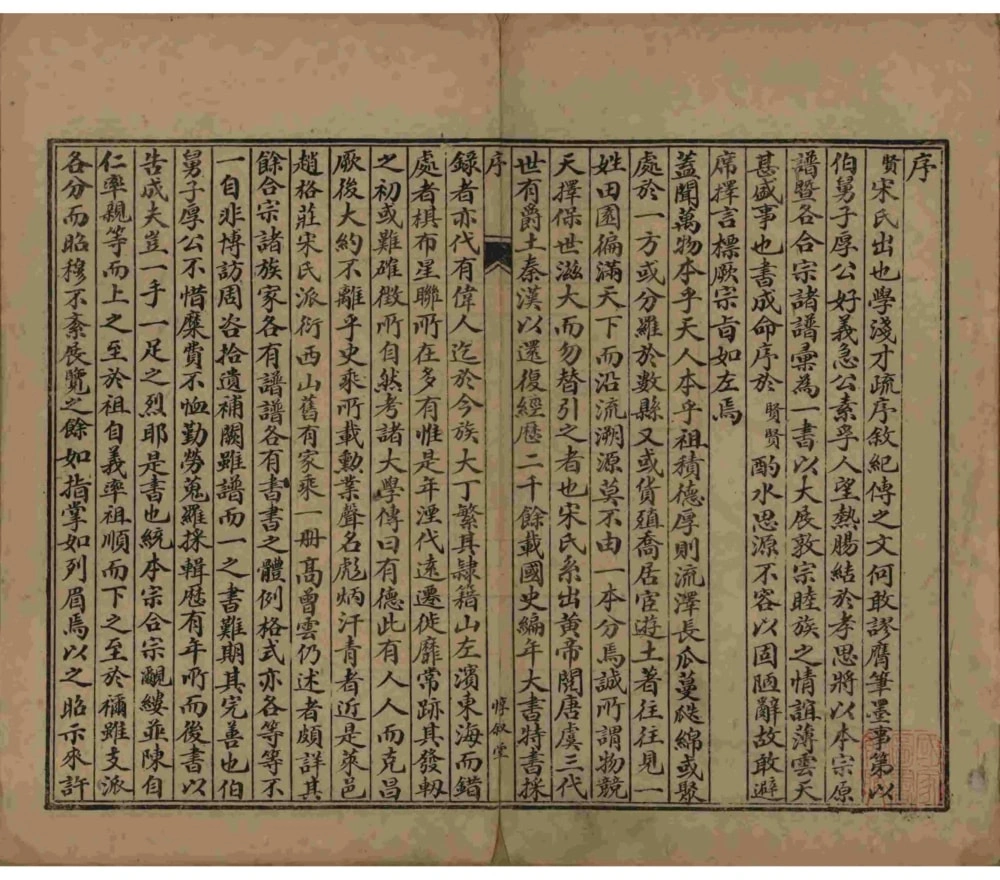 序
賢宋氏出也學淺才疏序敘紀傳之文何敢謬膺筆墨事第以
伯舅子厚公好義急公素孚人望熱腸結於孝思將以本宗原
譜暨各合宗諸譜彙為一書以大展敦宗睦族之情誼薄雲天
甚盛事也書成命序於賢賢酌水思源不容以固陋辭故敢避
席擇言標厥宗旨如左焉
蓋聞萬物本乎天人本乎祖積德厚則流澤長瓜蔓瓞綿或聚
處於一方或分羅於數縣又或貨殖喬居宦遊土著往往見一
姓田園徧滿天下而沿流溯源莫不由一本分焉誠所謂物競
天擇保世滋大而勿替引之者也宋氏系出黃帝閱唐虞三代
世有爵土秦漢以還復經歷二千餘載國史編年大書特書採
序
惇敘堂
錄者亦代有偉人迄於今族大丁繁其隸籍山左濱東海而錯
處者棋布星聯所在多有惟是年湮代遠遷徙靡常跡其發軔
之初或難確徵所自然考諸大學傳曰有德此有人人而克昌
厥後大約不離乎史乘所載勳業聲名彪炳汗青者近是萊邑
趙格莊宋氏派衍西山舊有家乘一冊高曾雲仍述者頗詳其
餘合宗諸族家各有譜譜各有書書之體例格式亦各等等不
一自非博訪周咨拾遺補闕雖譜而一之書難期其完善也伯
舅子厚公不惜糜費不恤勤勞蒐羅採輯歷有年所而後書以
告成夫豈一手一足之烈耶是書也統本宗合宗覼縷並陳自
仁率親等而上之至於祖自義率祖順而下之至於禰雖支派
各分而昭穆不紊展覽之餘如指掌如列眉焉以之昭示來許